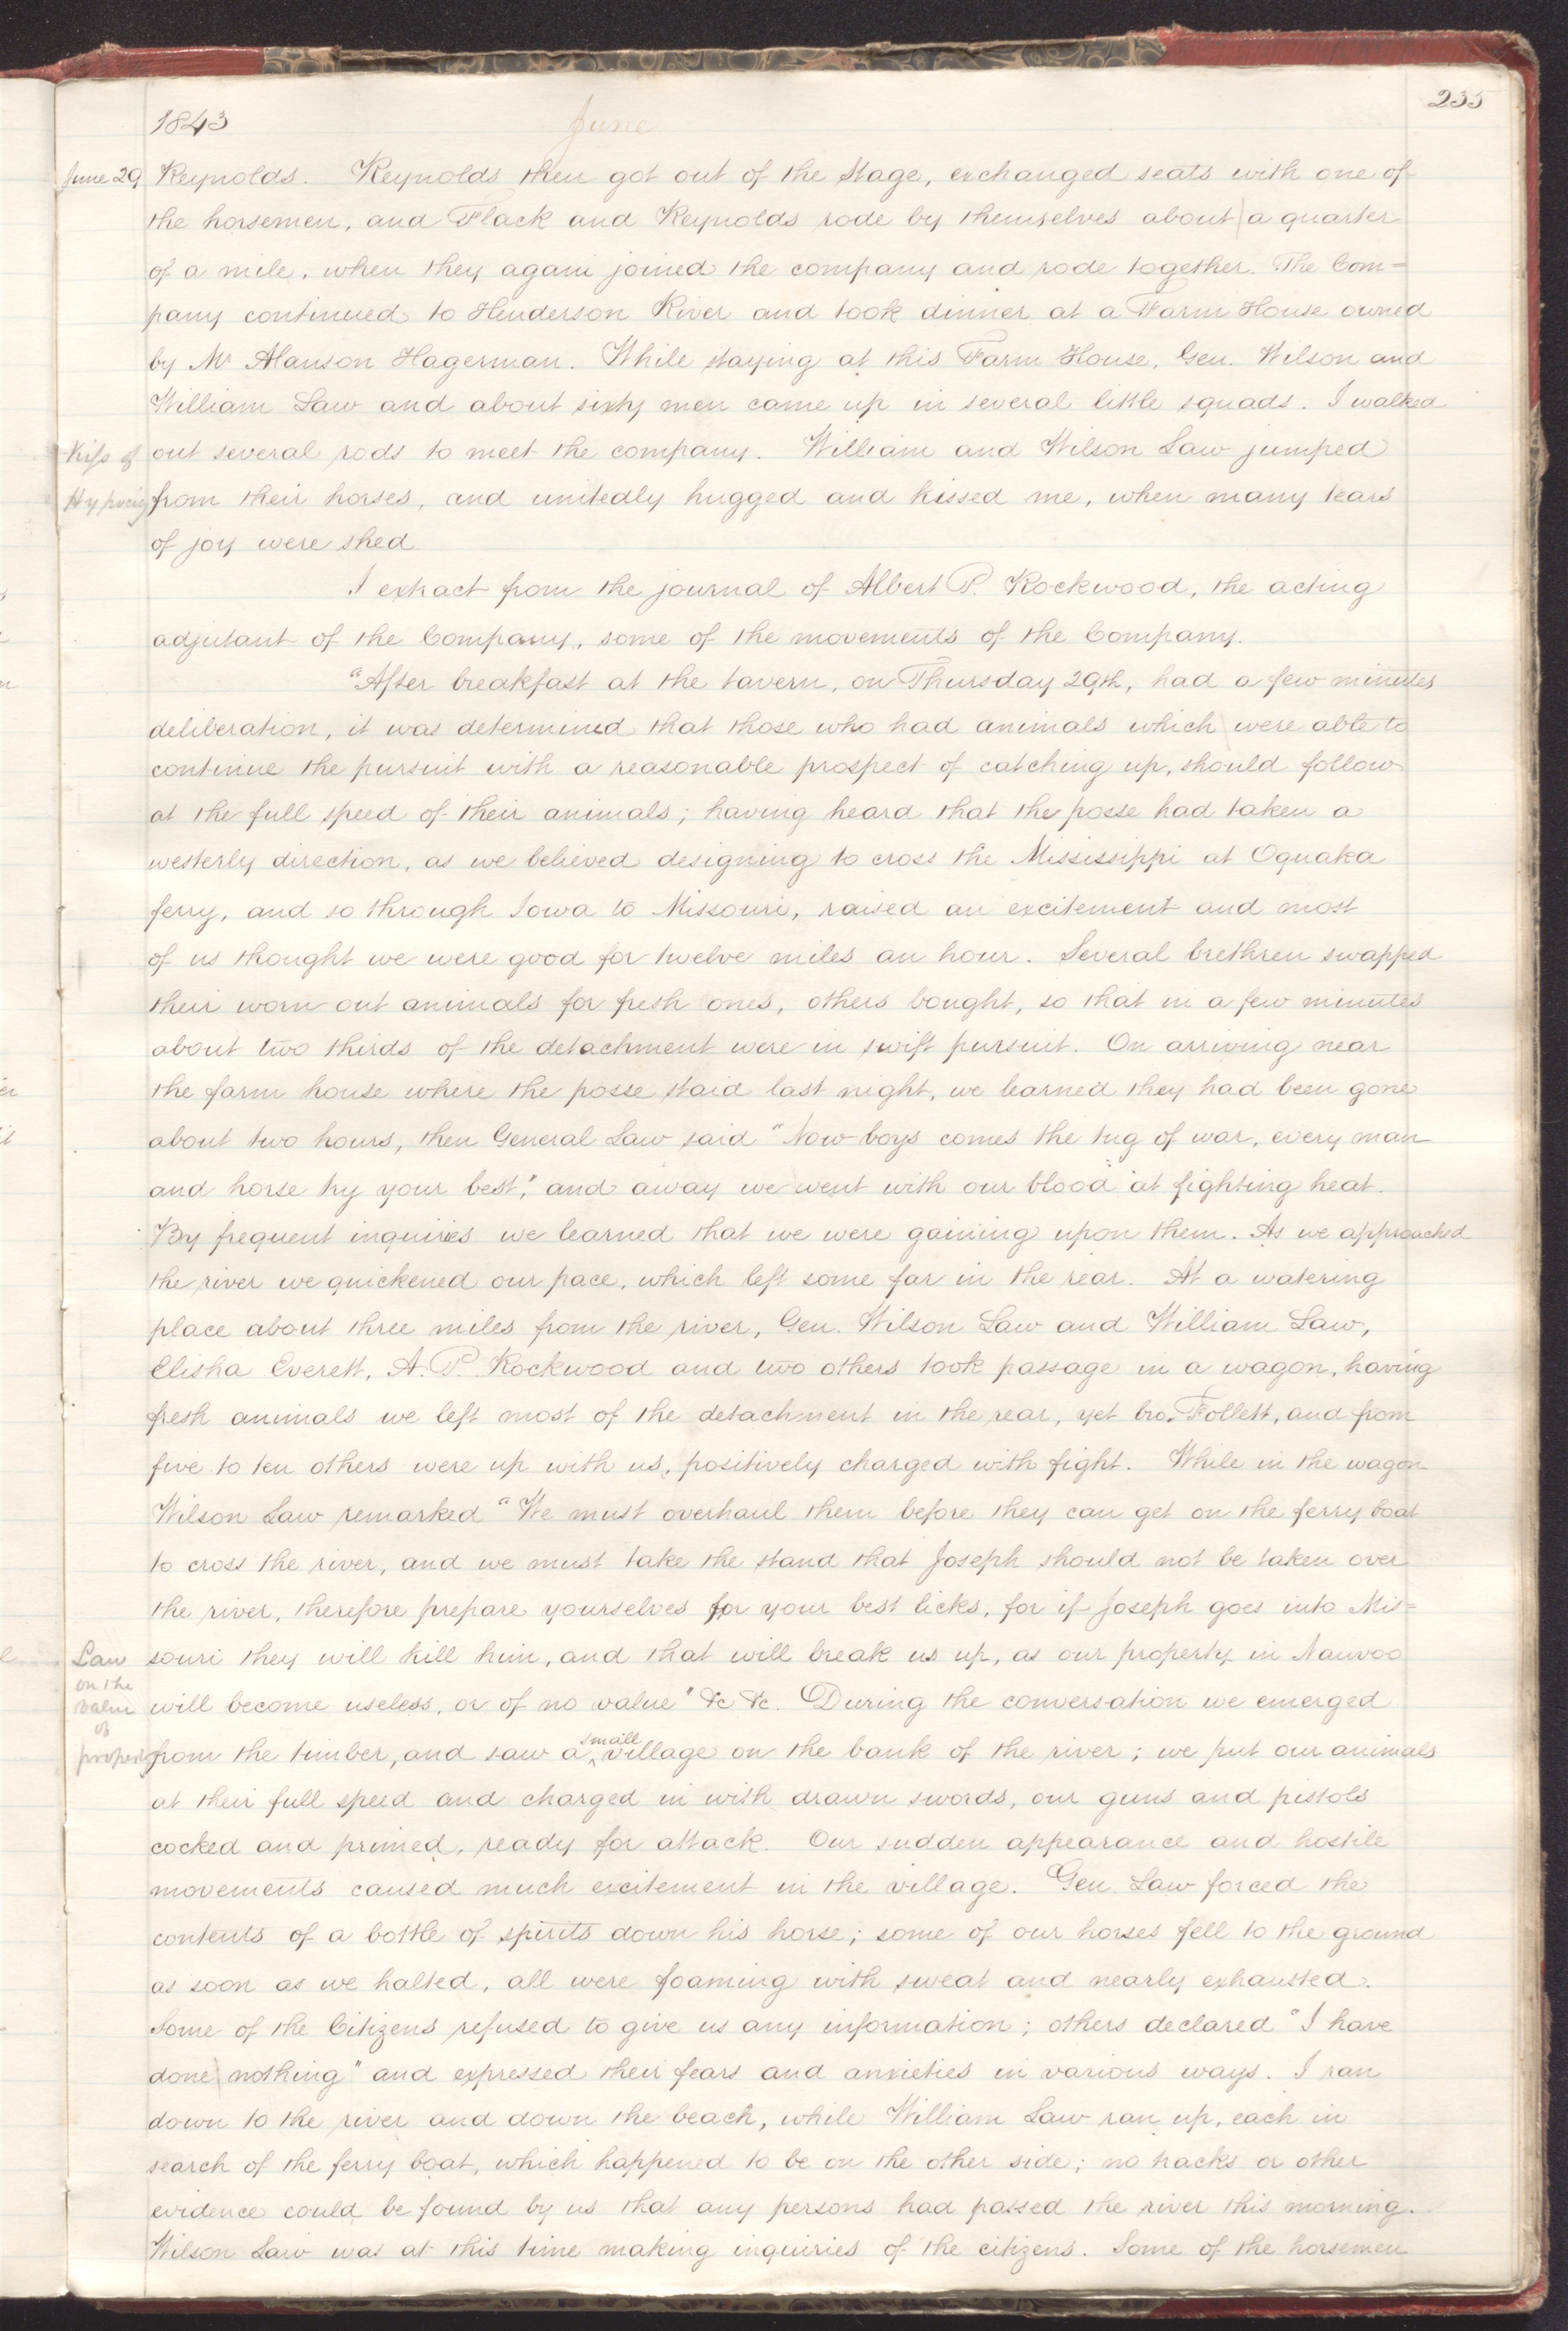 235
1843
June
June 29 Reynolds. Reynolds then got out of the Stage, exchanged seats with one of
the horsemen, and Flack and Reynolds rode by themselves about a quarter
of a mile, when they again joined the company and rode together. The Com=
pany continued to Henderson River and took dinner at a Farm House owned
by Mr Alanson Hagerman. While staying at this Farm House, Gen. Wilson and
William Law and about sixty men came up in several little squads. I walked
Kiss of out several rods to meet the company. William and Wilson Law jumped
from their horses, and unitedly hugged and kissed me, when many tears
of joy were shed
I extract from the journal of Albert P. Rockwood, the acting
adjutant of the Company, some of the movements of the Company.
"After breakfast at the tavern, on Thursday 29th, had a few minutes
deliberation, it was determined that those who had animals which were able to
continue the pursuit with a reasonable prospect of catching up, should follow
at the full speed of their animals; having heard that the posse had taken a
westerly direction, as we believed designing to cross the Mississippi at Oquaka
ferry, and so through Iowa to Missouri, raised an excitement and most
of us thought we were good for twelve miles an hour. Several brethren swapped
their worn out animals for fresh ones, others bought, so that in a few minutes
about two thirds of the detachment were in swift pursuit. On arriving near
the farm house where the posse staid last night, we learned they had been gone
about two hours, then General Law said "Now boys comes the tug of war, every man
and horse try your best," and away we went with our blood at fighting heat.
By frequent inquiries we learned that we were gaining upon them. As we approached
the river we quickened our pace, which left some far in the rear. At a watering
place about three miles from the river, Gen. Wilson Law and William Law,
Elisha Everett, A. P. Rockwood and two others took passage in a wagon, having
fresh animals we left most of the detachment in the rear, yet bro. Follett, and from
five to ten others were up with us, positively charged with fight. While in the wagon
Wilson Law remarked "We must overhaul them before they can get on the ferry boat
to cross the river, and we must take the stand that Joseph should not be taken over
the river, therefore prepare yourselves for your best licks, for if Joseph goes into Mis=
Law souri they will kill him, and that will break us up, as our property in Nauvoo
on the
value will become useless, or of no value" &c &c. During the conversation we emerged
of
from the timber, and saw a small village on the bank of the river; we put our animals
at their full speed and charged in with drawn swords, our guns and pistols
cocked and primed, ready for attack. Our sudden appearance and hostile
movements caused much excitement in the village. Gen Law forced the
contents of a bottle of spirits down his horse; some of our horses fell to the ground
as soon as we halted, all were foaming with sweat and nearly exhausted.
Some of the Citizens refused to give us any information; others declared "I have
done nothing" and expressed their fears and anxieties in various ways. I ran
down to the river and down the beach, while William Law ran up, each in
search of the ferry boat, which happened to be on the other side; no tracks or other
evidence could be found by us that any persons had passed the river this morning.
Wilson Law was at this time making inquiries of the citizens. Some of the horsemen